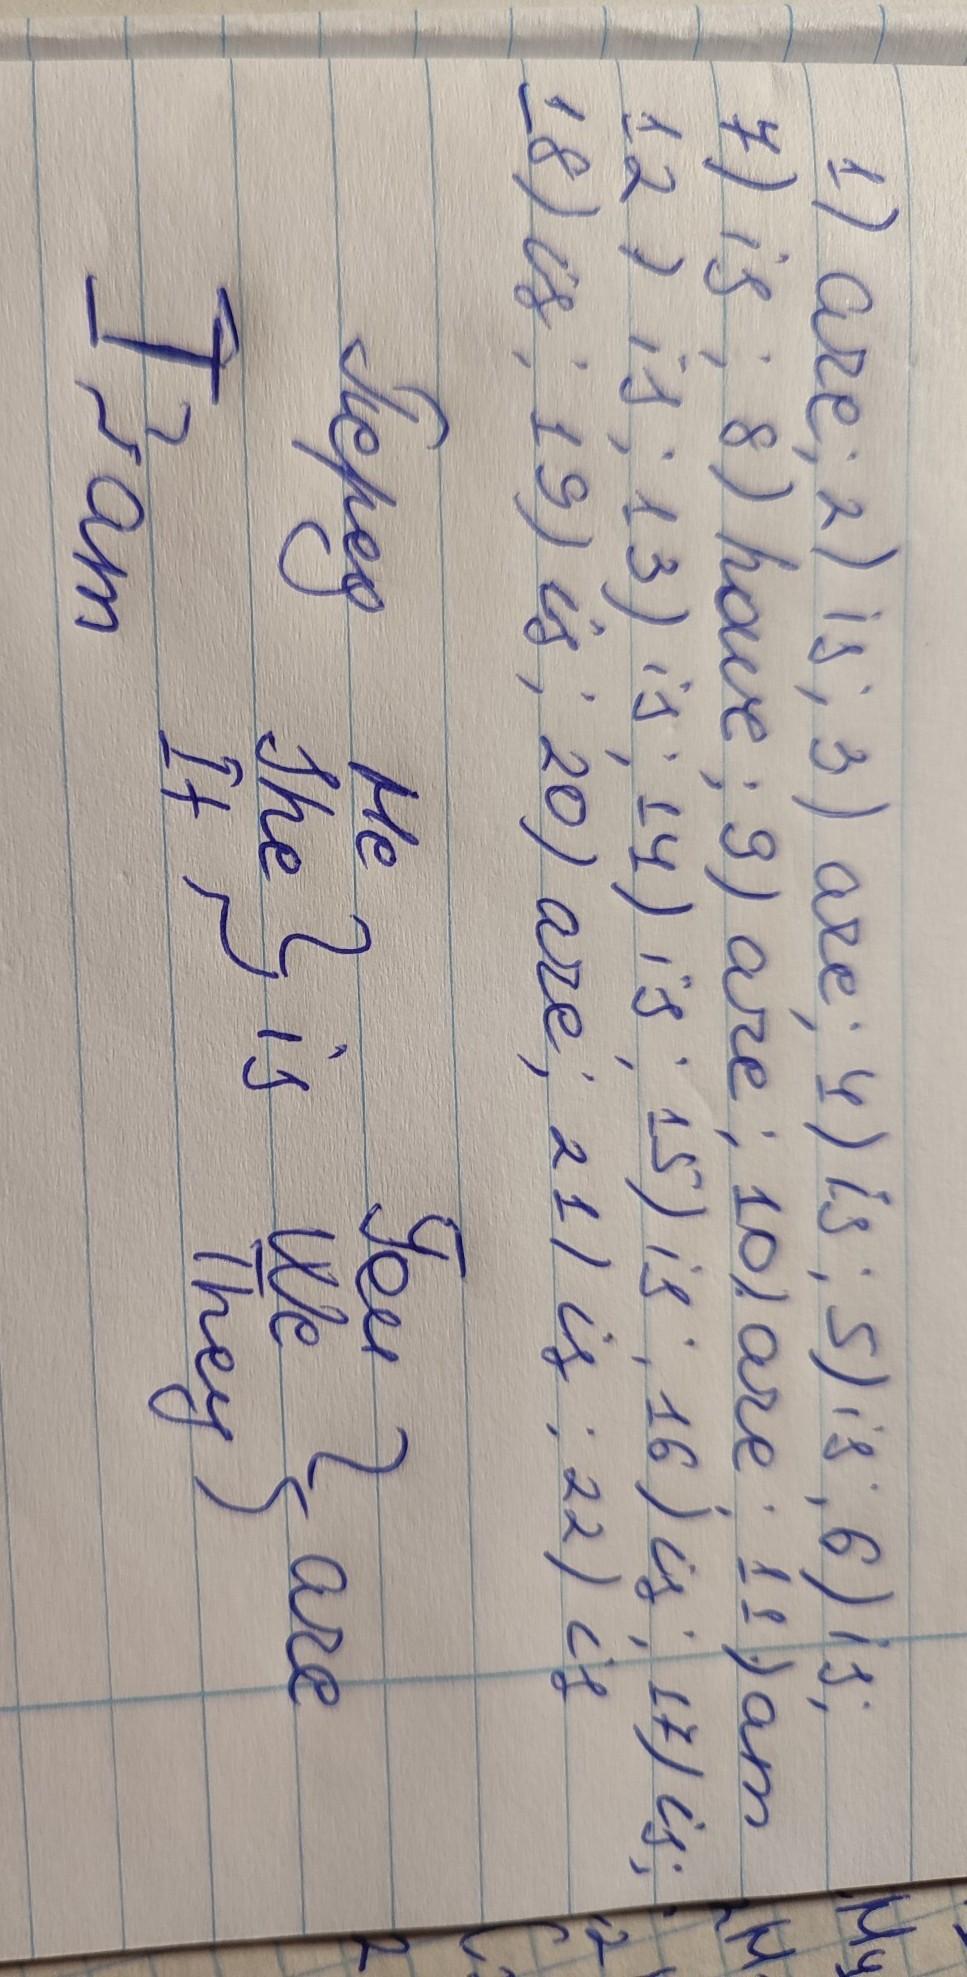 1) are; 2) is; 3) are; 4) is; 5) is; 6) is;
7) is; 8) have; 9) are; 10) are; 11) am
12) is; 13) is; 14) is; 15) is; 16) is; 17) is;
18) is; 19) is; 20) are; 21) is; 22) is
Перед He You
She } is We } are
I } am It They